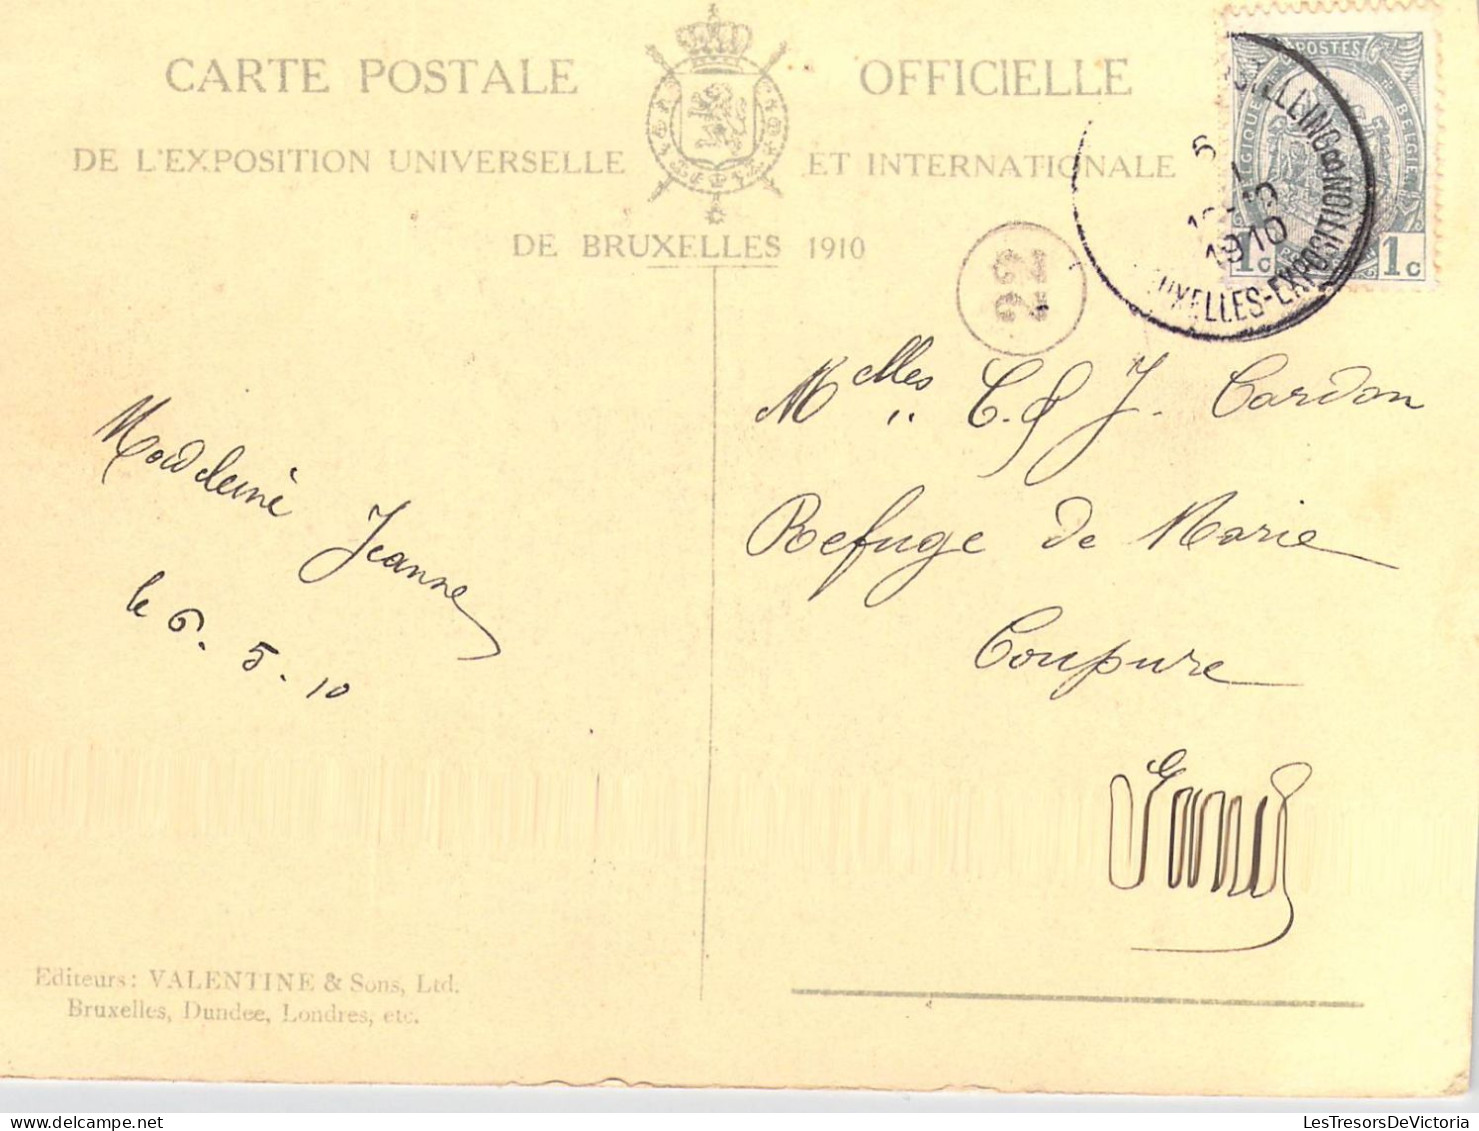 CARTE POSTALE OFFICIELLE
DE L'EXPOSITION UNIVERSELLE ET INTERNATIONALE
DE BRUXELLES 1910
POSTES
BELGIQUE BELGIË
1c 1c
TELLING 8
UXELLES-EXPOSITION
6
10
1910
22
Melles C. & J. Cardon
Refuge de Marie
Coupure
Gand
Madeleine
Jeanne
le 6. 5. 10
Editeurs: VALENTINE & Sons, Ltd.
Bruxelles, Dundee, Londres, etc.
LesTresorsDeVictoria